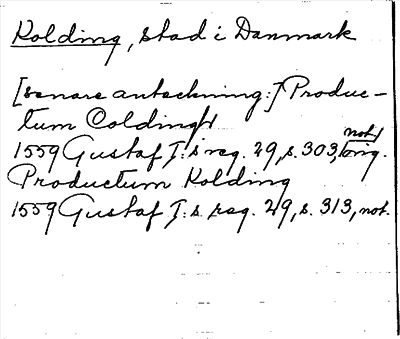 Kolding, stad i Danmark
[senare anteckning:] Produc-
tum Colding
1559 Gustaf I:s reg. 29, s. 303, not
Productum Kolding
1559 Gustaf I:s reg. 29, s. 313, not.